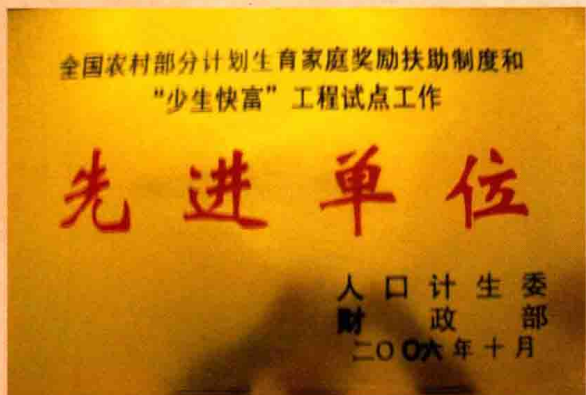 全国农村部分计划生育家庭奖励扶助制度和
“少生快富”工程试点工作
先进单位
人口计生委
财政部
二〇〇六年十月